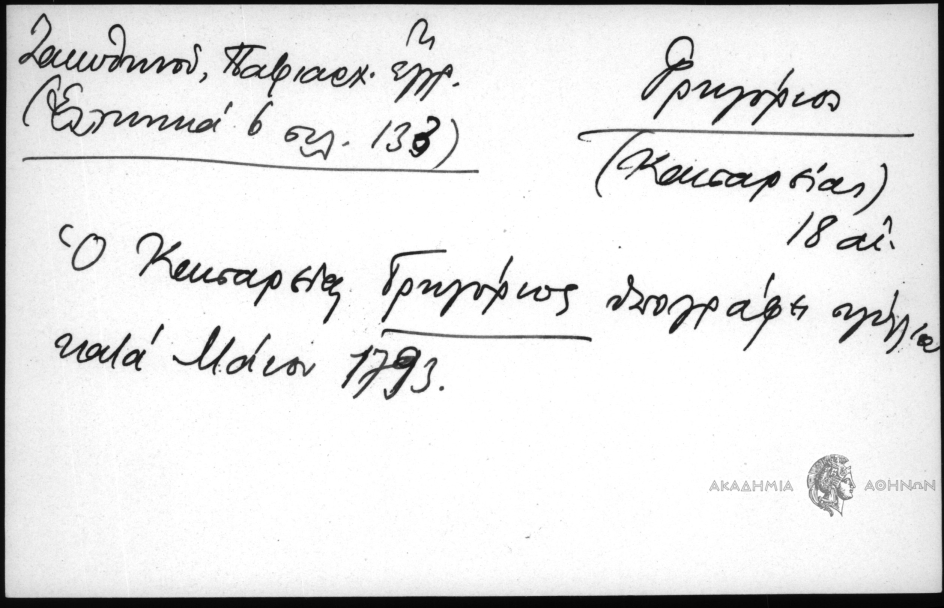 Ζακυθηνοῦ, Πατριαρχ. ἔγγρ.
(Ἑλληνικά 6 σελ. 133)
Γρηγόριος
(Καισαρείας)
18 αἰ.
Ὁ Καισαρείας Γρηγόριος ὑπογράφει
κατά Μάιον 1793.
ΑΚΑΔΗΜΙΑ ΑΘΗΝΩΝ